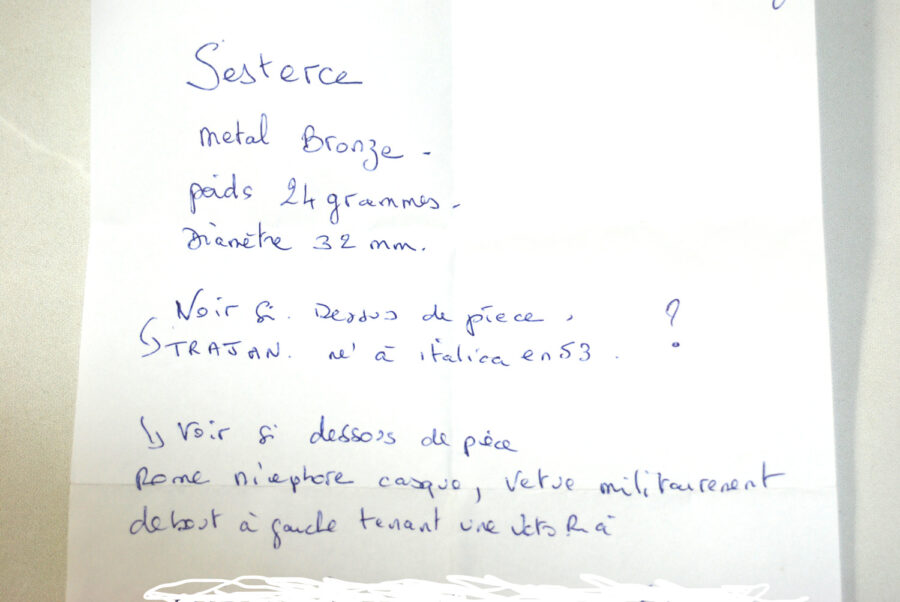 Sesterce
metal Bronze -
poids 24 grammes -
Diamètre 32 mm.
Voir si. Dessus de pièce, ?
↳ TRAJAN. né à italica en 53.
↳ Voir si dessous de pièce
Rome nicephore casque, vetue militairement
debout à gauche tenant une victoRia